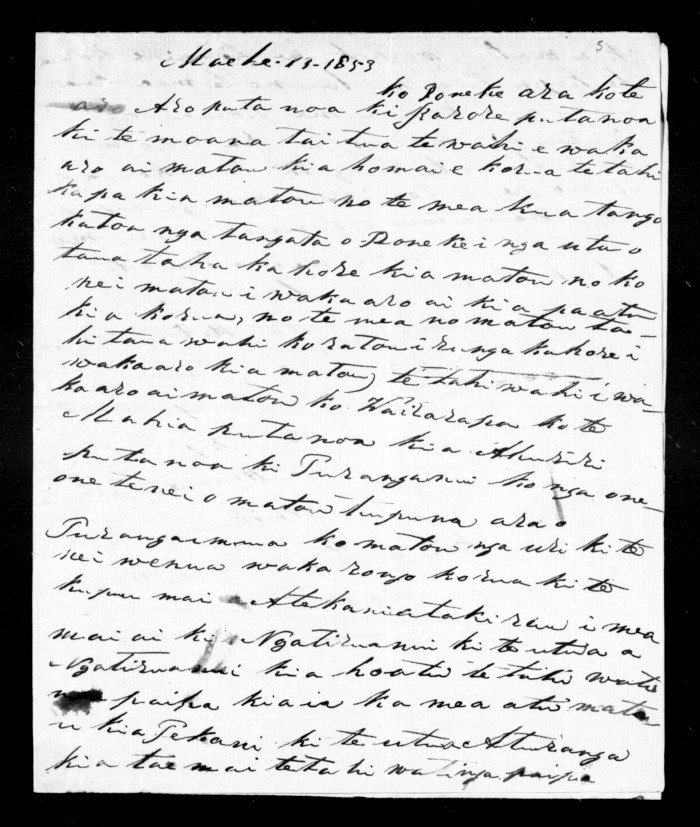 5
Maehe: 13-1853
ko Poneke ara ko te
aro Aro puta noa ki Karore puta noa
ki te moana tai tua te wahi e waka
aro ai matou kia homai e korua tetahi
kapa kia matou no te mea kua tango
katoa nga tangata o Poneke i nga utu o
tana taha kahore kia matou no ko
nei matou i wakaaro ai kia paatu
kia korua, no te mea no matou ta-
ki taua wahi ko ratou i runga kahore i
wakaaro kia matou, te tahi wahi i wa-
kaaro ai matou ko Wairarapa ko te
Mahia puta noa kia Ahuriri
puta noa ki Turanganui ko nga one-
one tenei o matou tupuna ara o
Turangaimua ko matou nga uri ki te
nei wenua wakarongo korua ki te
kupu mai a Tekaniatakirau i mea
mai ai ki Ngatiruanui ki te utua a
Ngatiruanui kia hoatu te tahi wati
paipa kia ia ka mea atu mato
u kia Tekani ki te utua Aturanga
kia tae mai tetahi watinga paipa